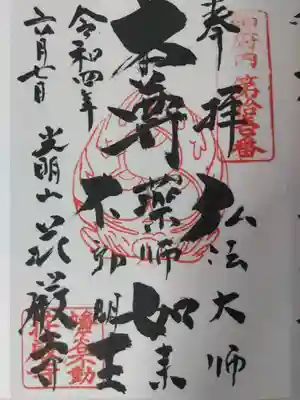 奉拝
弘法大師
本尊
薬師如来
不動明王
令和四年
六月七日
光明山 花厳寺